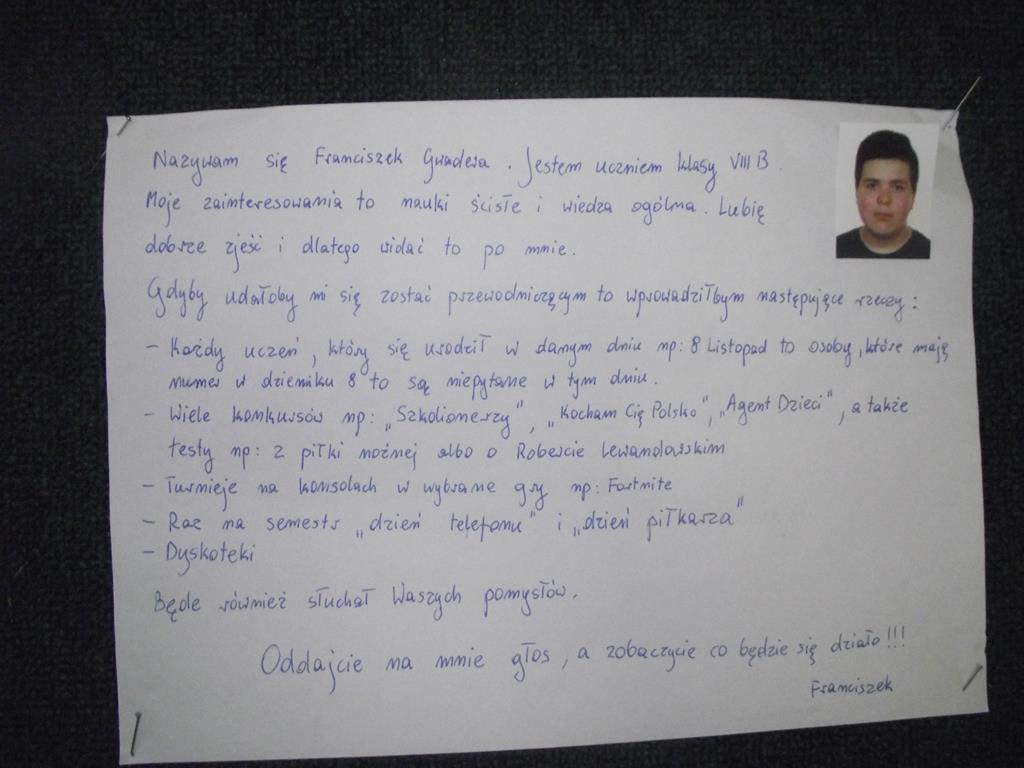 Nazywam się Franciszek Gwadera. Jestem uczniem klasy VIII B
Moje zainteresowania to nauki ścisłe i wiedza ogólna. Lubię
dobrze zjeść i dlatego widać to po mnie.
Gdyby udałoby mi się zostać przewodniczącym to wprowadziłbym następujące rzeczy:
- Każdy uczeń, który się urodził w danym dniu np: 8 Listopad to osoby, które mają
numer w dzienniku 8 to są niepytane w tym dniu.
- Wiele konkursów np: „Szkolionerzy", „Kocham Cię Polsko", „Agent Dzieci", a także
testy np: z piłki nożnej albo o Robercie Lewandowskim
- Turnieje na konsolach w wybrane gry np: Fortnite
- Raz na semestr „dzień telefonu" i „dzień piłkarza"
- Dyskoteki
Będe również słuchał Waszych pomysłów.
Oddajcie na mnie głos, a zobaczycie co będzie się działo!!!
Franciszek